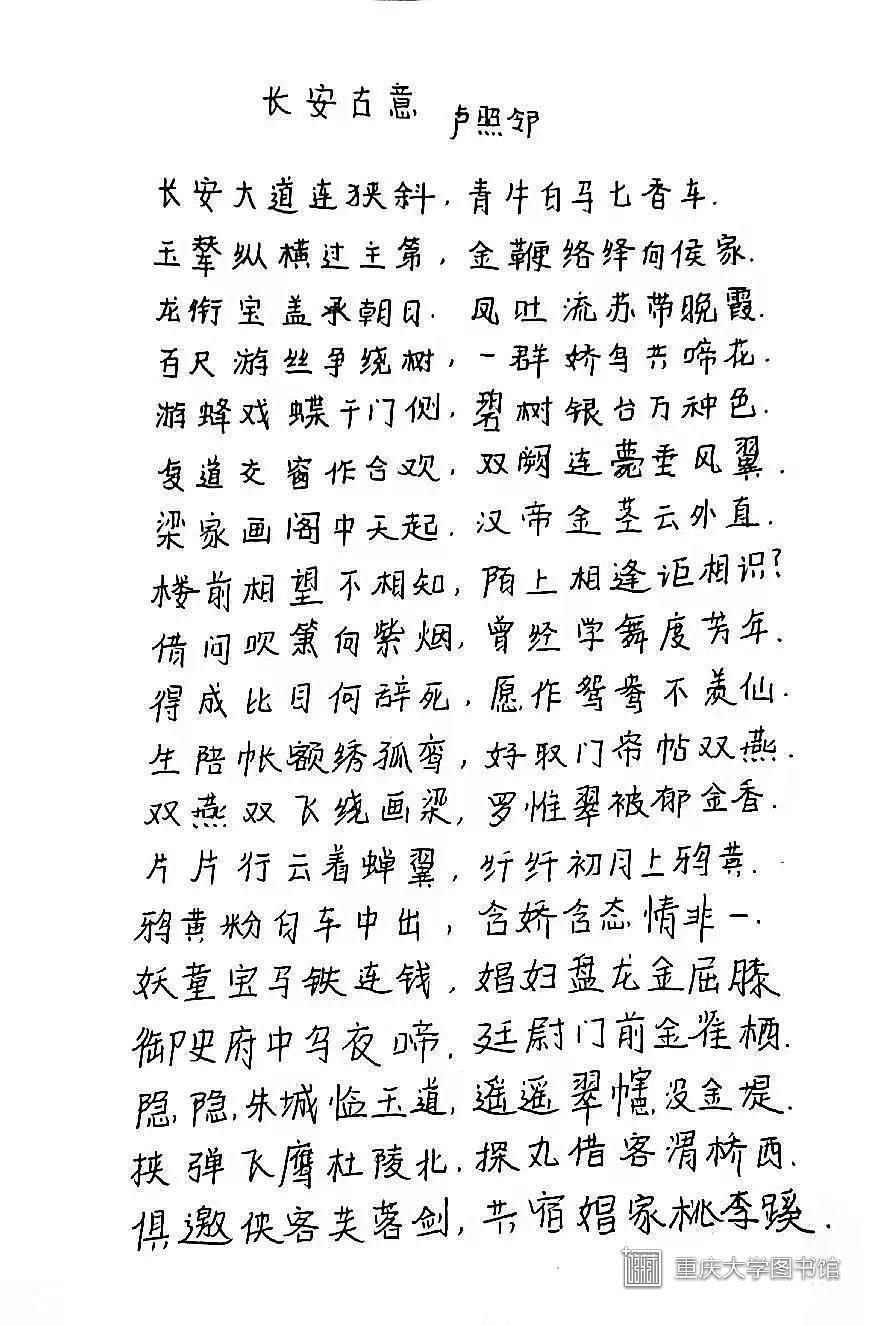 长安古意
卢照邻
长安大道连狭斜，青牛白马七香车．
玉辇纵横过主第，金鞭络绎向侯家．
龙衔宝盖承朝日．凤吐流苏带晚霞．
百尺游丝争绕树，一群娇鸟共啼花．
游蜂戏蝶千门侧，碧树银台万种色．
复道交窗作合欢，双阙连甍垂凤翼．
梁家画阁中天起．汉帝金茎云外直．
楼前相望不相知，陌上相逢讵相识？
借问吹箫向紫烟，曾经学舞度芳年．
得成比目何辞死，愿作鸳鸯不羡仙．
生陪帐额绣孤鸾，好取门帘帖双燕．
双燕双飞绕画梁，罗帷翠被郁金香．
片片行云着蝉翼，纤纤初月上鸦黄．
鸦黄粉白车中出，含娇含态情非一．
妖童宝马铁连钱，娼妇盘龙金屈膝
御史府中乌夜啼．廷尉门前金雀栖．
隐隐朱城临玉道，遥遥翠幰没金堤．
挟弹飞鹰杜陵北．探丸借客渭桥西．
俱邀侠客芙蓉剑，共宿娼家桃李蹊．
重庆大学图书馆